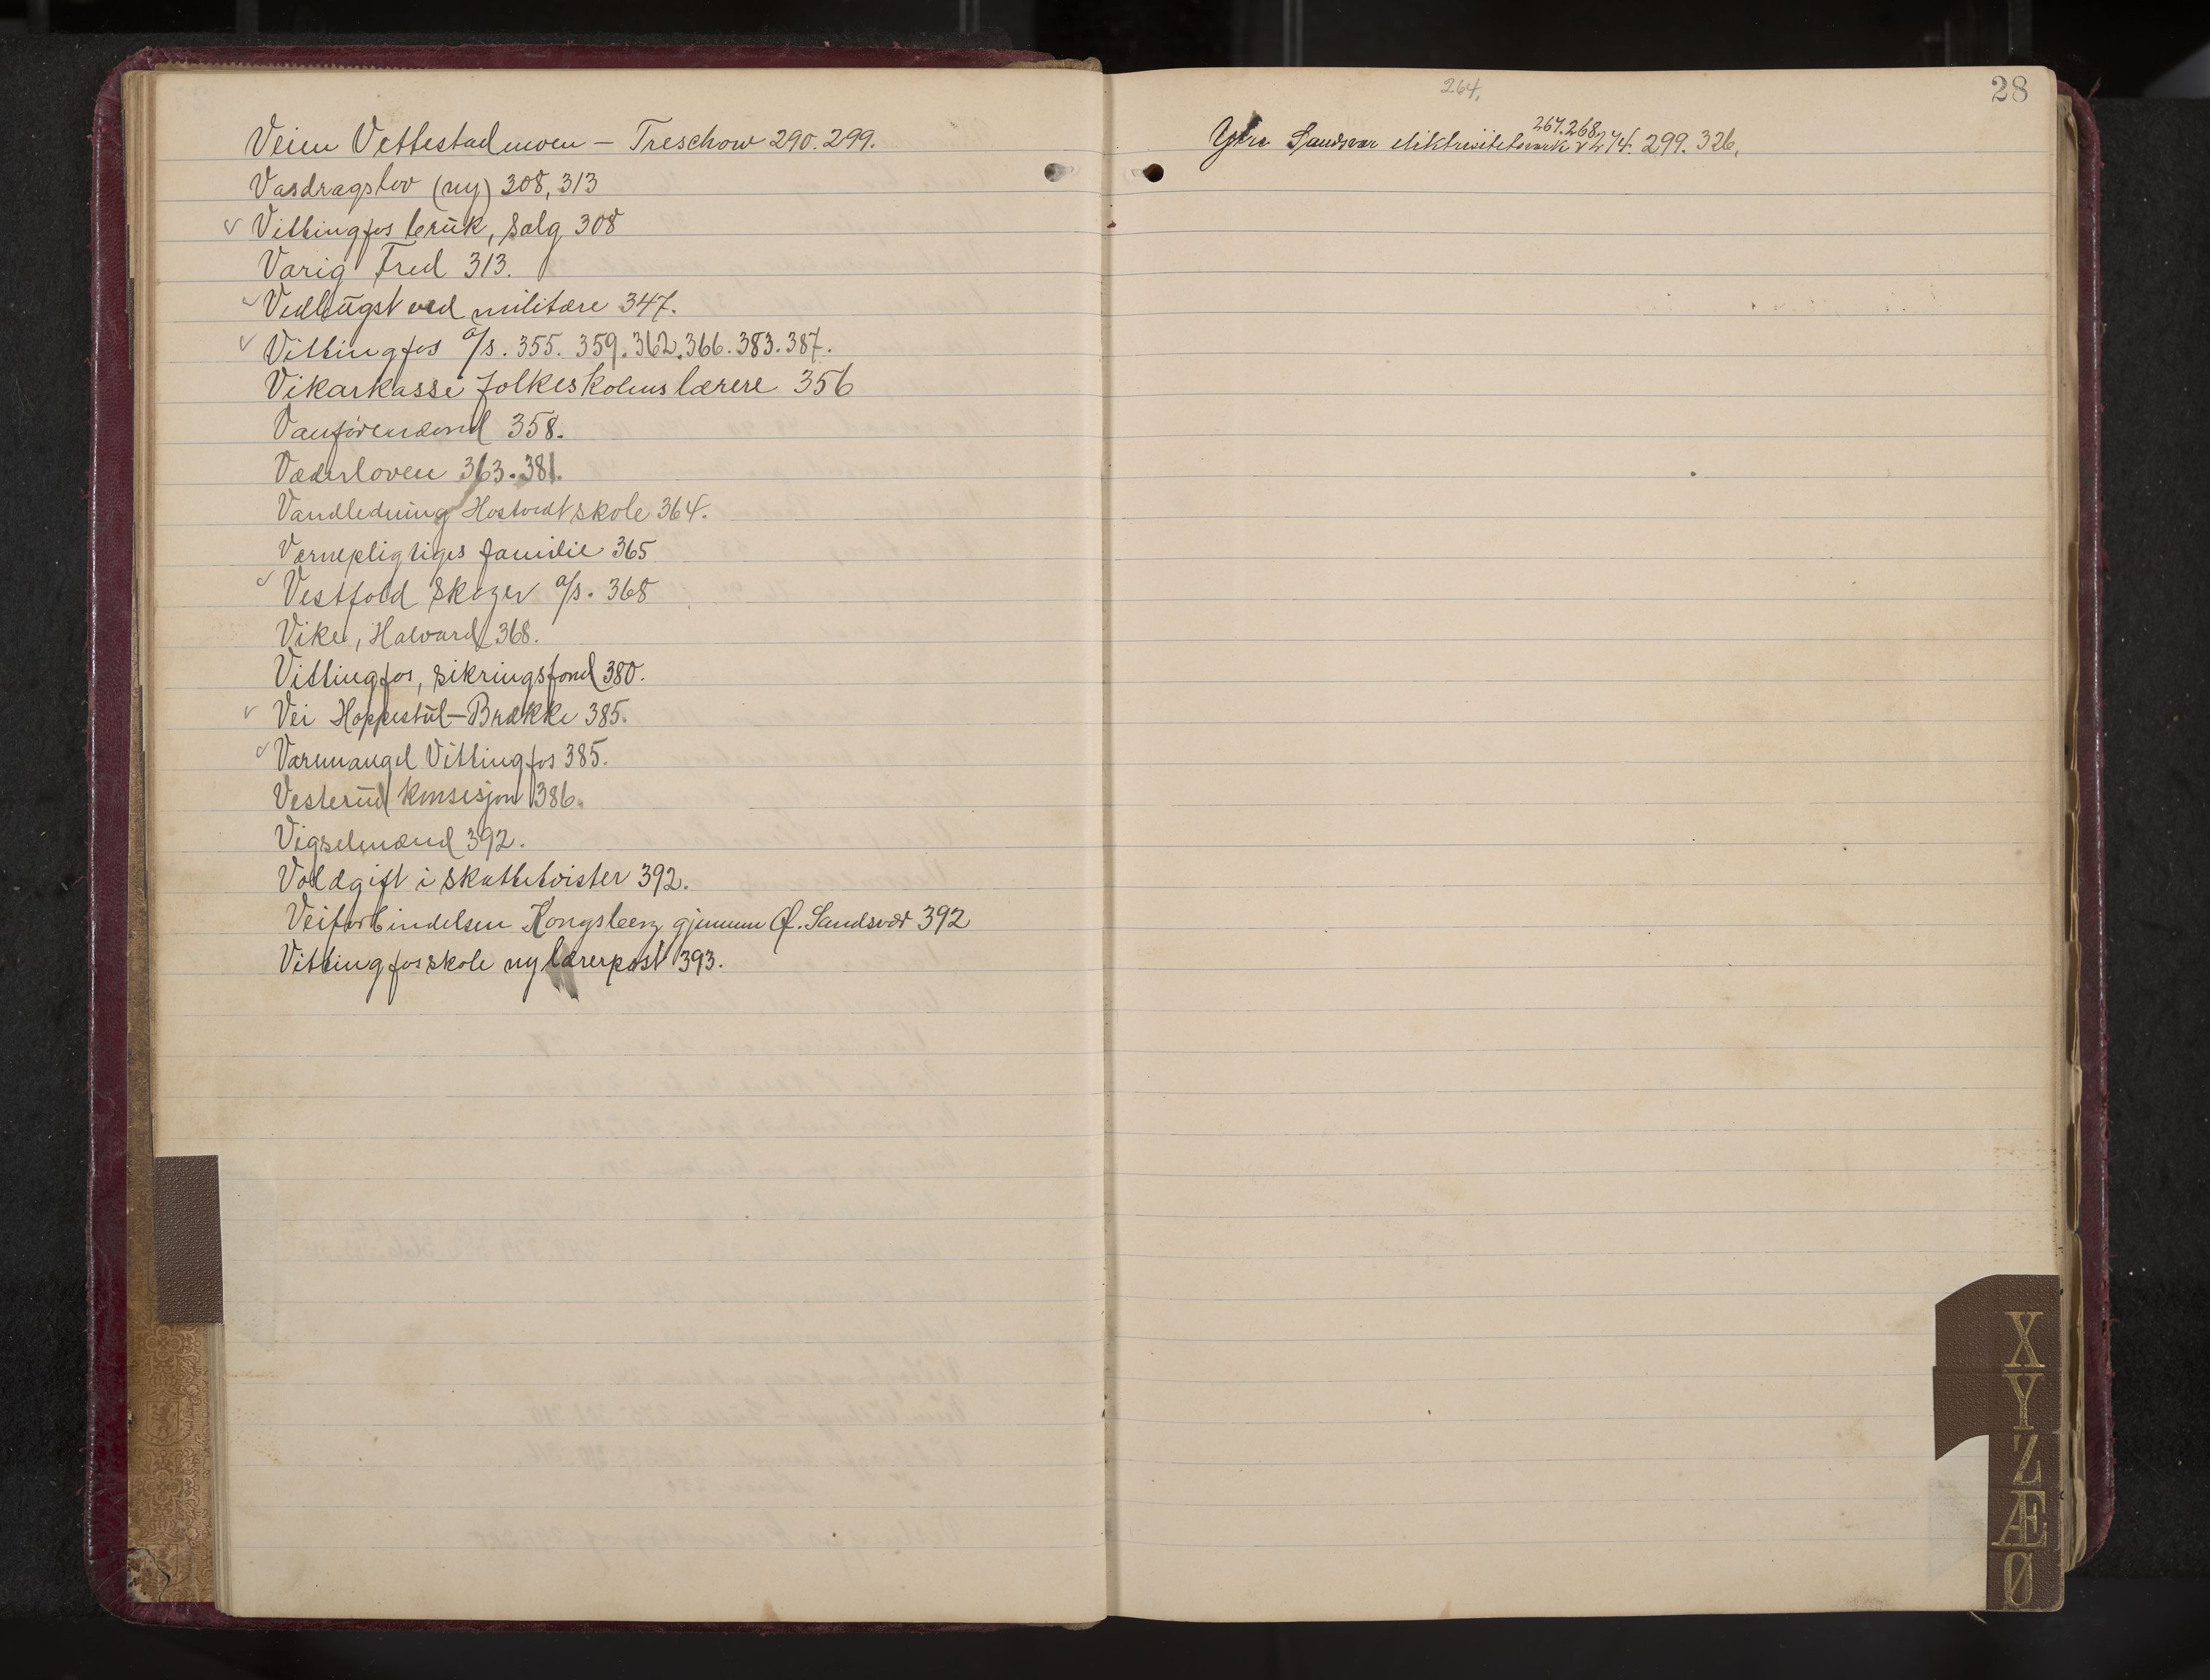 Veien Vettestadmoen – Treschow 290. 299.
Vasdragslov (ny) 308, 313
✓ Vittingfos brük, salg 308
Varig Fred 313.
✓ Vedhügst ved militære 347.
✓ Vittingfos a/s. 355. 359. 362. 366. 383. 387.
Vikarkasse folkeskolens lærere 356
Vanførenævnd 358.
Vederloven 363. 381.
Vandledning Hostvedt skole 364.
Vernepligtiges familie 365
✓ Vestfold Skoger a/s. 368
Vike, Halvard 368.
Vittingfos, sikringsfond 380.
✓ Vei Hoppestül–Brække 385.
✓ Varmangel Vittingfos 385.
Vesterüd konsesjon 386.
Vigselmænd 392.
Voldgift i skattetvister 392.
Veiforbindelsen Kongsberg gjennem Ø. Sandsvær 392
Vittingfos skole ny lærerpost 393.
264.
28
267. 268.
Ytre Sandsvær elektrisitetsverk 274. 299. 326.
X
Y
Z
Æ
Ø